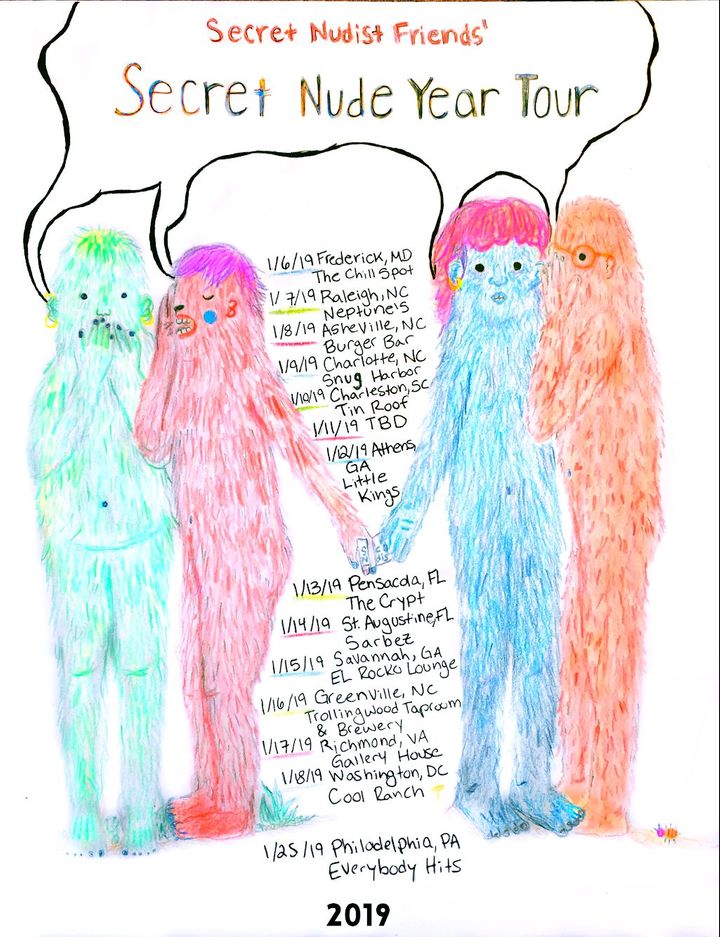 Secret Nudist Friends'
Secret Nude Year Tour
1/6/19 Frederick, MD
The Chill Spot
1/7/19 Raleigh, NC
Neptune's
1/8/19 Asheville, NC
Burger Bar
1/9/19 Charlotte, NC
Snug Harbor
1/10/19 Charleston, SC
Tin Roof
1/11/19 TBD
1/12/19 Athens,
GA
Little
Kings
1/13/19 Pensacola, FL
The Crypt
1/14/19 St. Augustine, FL
Sarbez
1/15/19 Savannah, GA
EL Rocko Lounge
1/16/19 Greenville, NC
Trollingwood Taproom
& Brewery
1/17/19 Richmond, VA
Gallery House
1/18/19 Washington, DC
Cool Ranch
1/25/19 Philadelphia, PA
Everybody Hits
2019